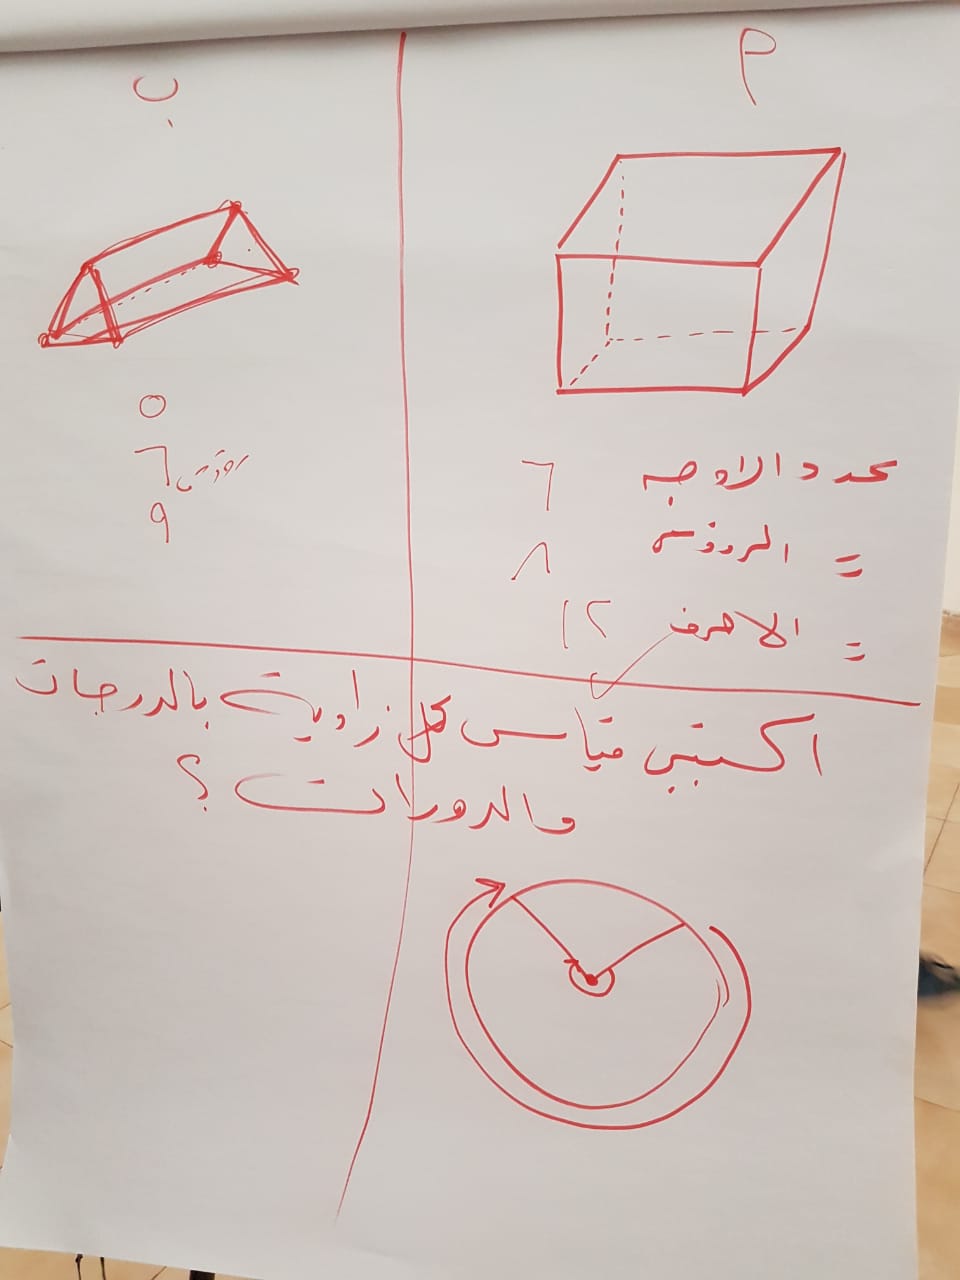 م
عدد الاوجه ٦
= الرؤوس ٨
= الاحرف ١٢
ب
٥
٦ رؤوس
٩
اكتبي قياس كل زاوية بالدرجات
والدورات ؟